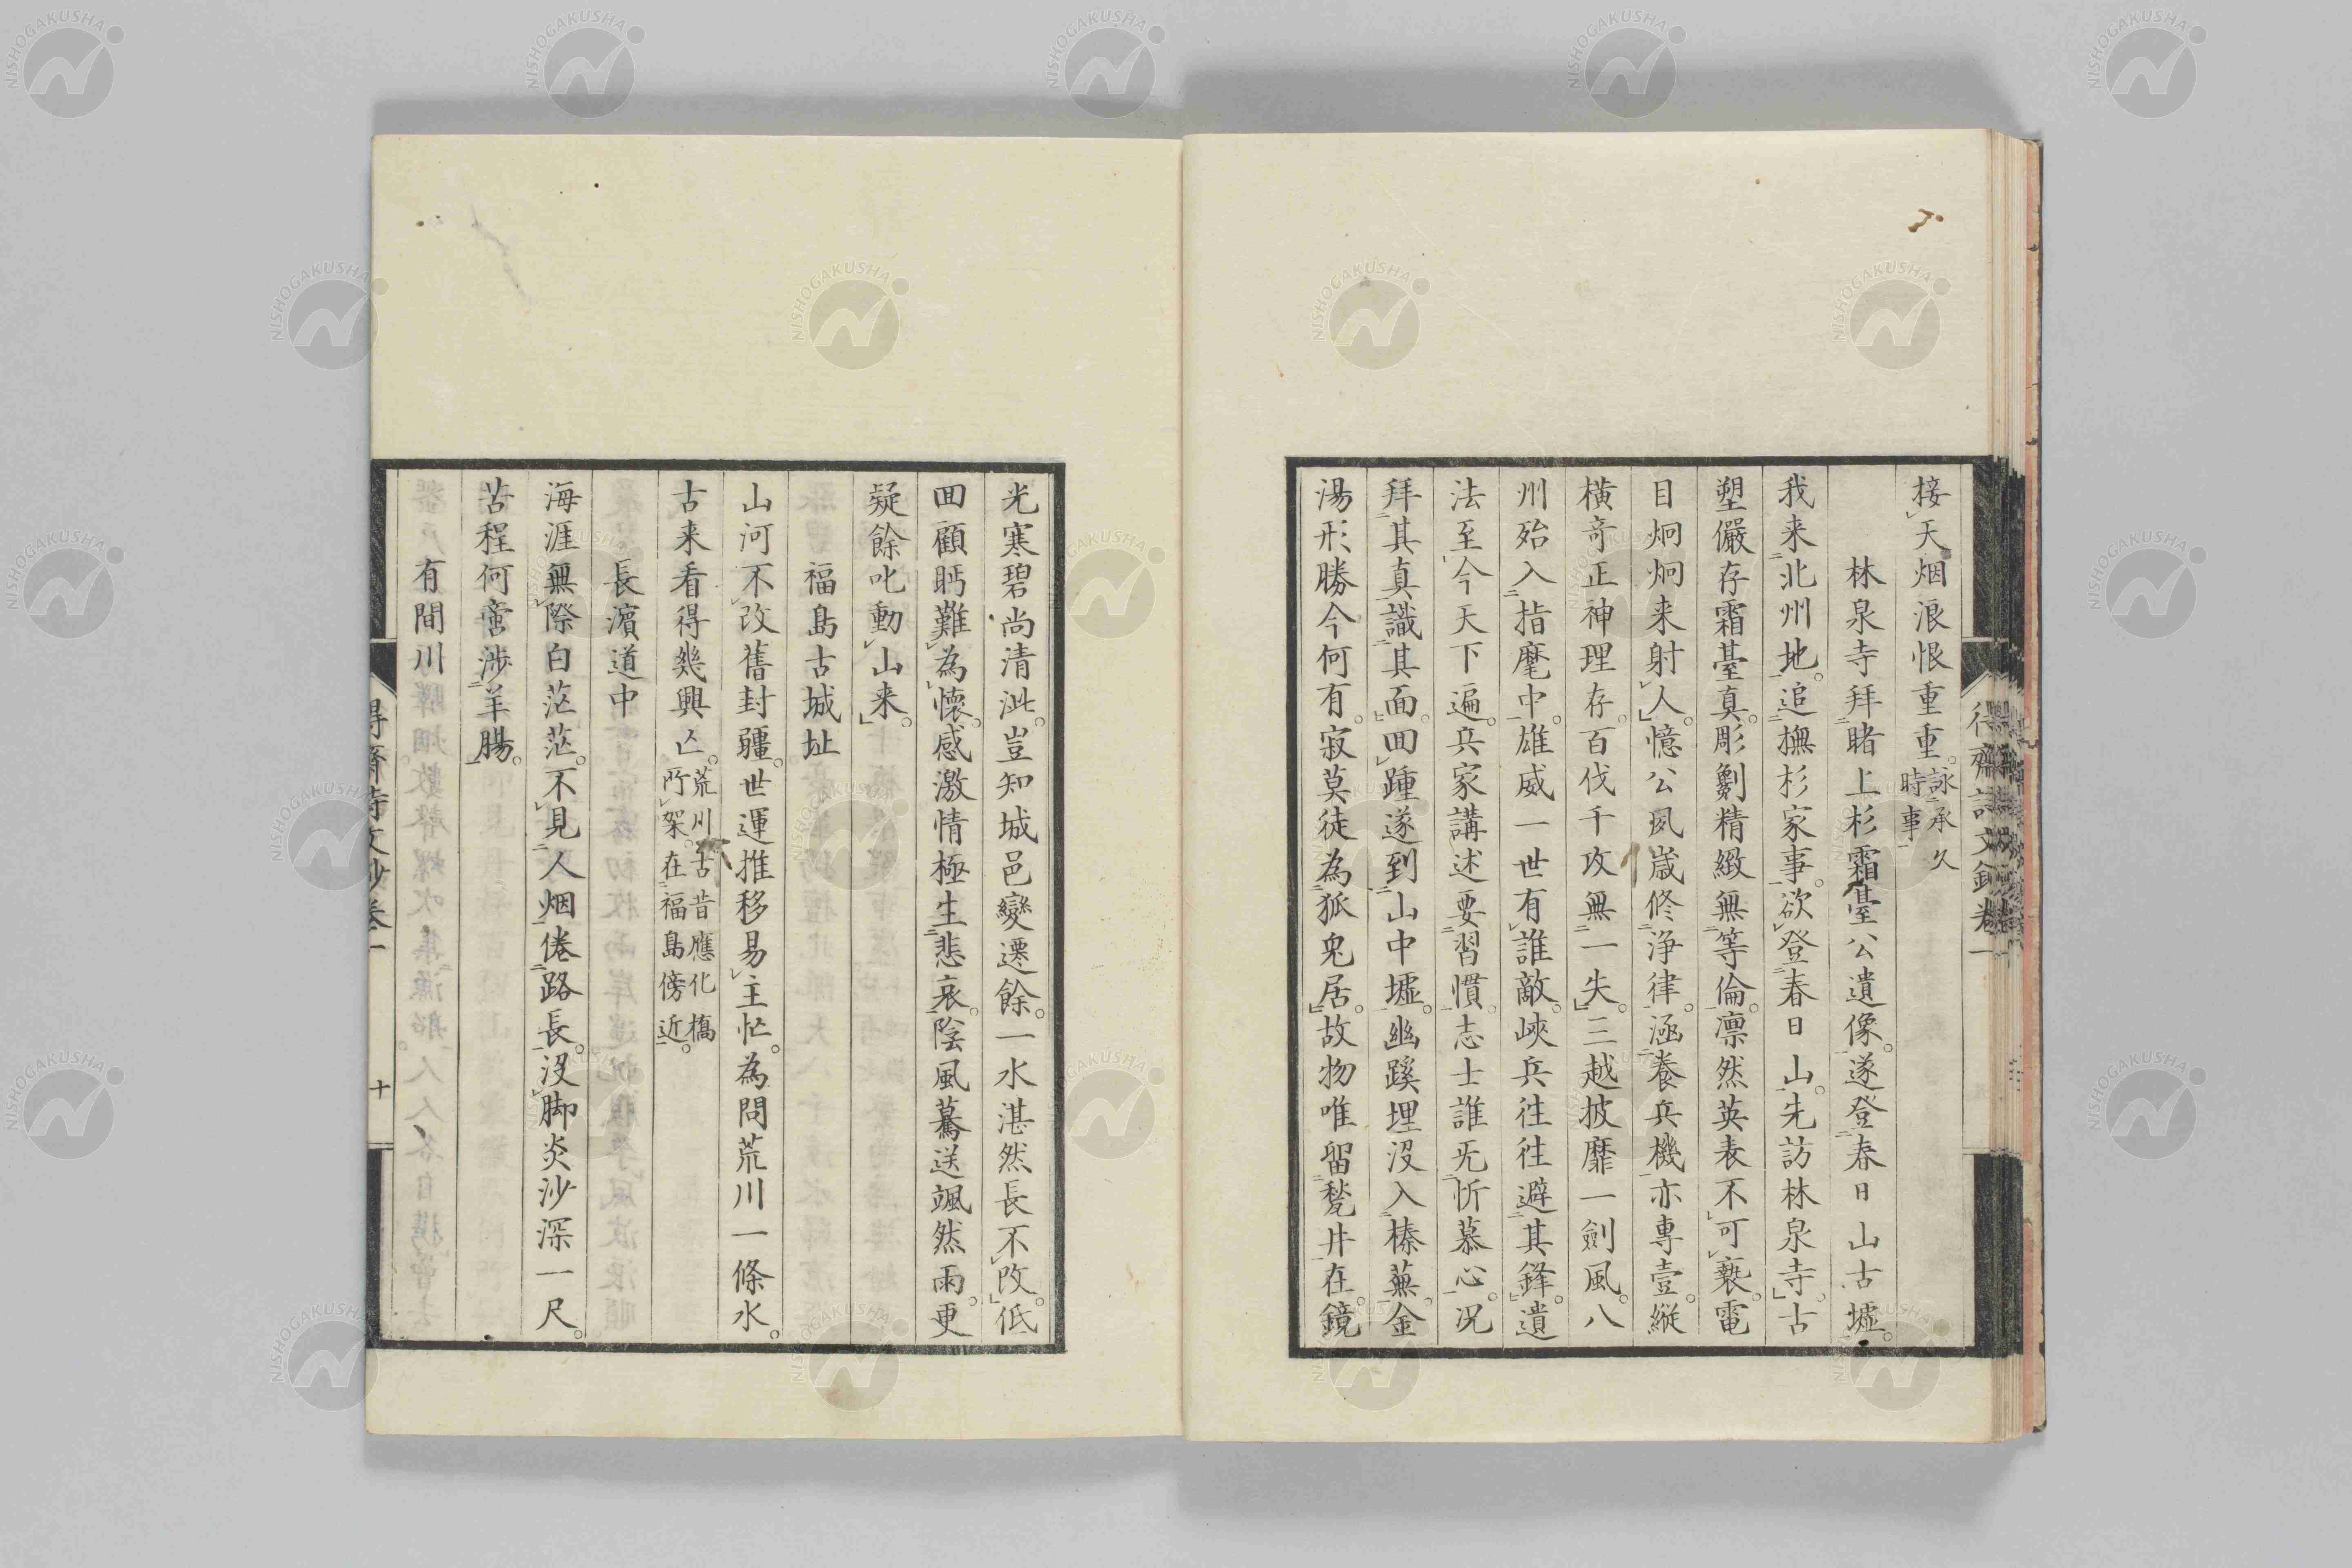 接天烟浪恨重重。詠承久
時事
林泉寺拜睹上杉霜臺公遺像。遂登春日山古墟。
我来北州地。追撫杉家事。欲登春日山。先訪林泉寺。古
塑儼存霜臺真。彫劖精緻無等倫。凛然英表不可褻。電
目炯炯来射人。憶公夙歳修浄律。涵養兵機亦專壹。縦
橫奇正神理存。百伐千攻無一失。三越披靡一劍風。八
州殆入指麾中。雄威一世有誰敵。峽兵往往避其鋒。遺
法至今天下遍。兵家講述要習慣。志士誰无忻慕心。況
拜其真識其面。回踵遂到山中墟。幽蹊埋沒入榛蕪。金
湯形勝今何有。寂莫徒為狐兎居。故物唯留甃井在。鏡
光寒碧尚清泚。豈知城邑變遷餘。一水湛然長不改。低
回顧眄難為懷。感激情極生悲哀。陰風驀送颯然雨。更
疑餘叱動山来。
福島古城址
山河不改舊封疆。世運推移易主忙。為問荒川一條水。
古来看得幾興亡。荒川古昔應化橋
所架。在福島傍近。
長濵道中
海涯無際白茫茫。不見人烟倦路長。沒脚炎沙深一尺。
苦程何啻渉羊腸。
有間川
得齋詩文鈔卷一
十
NISHOGAKUSHA